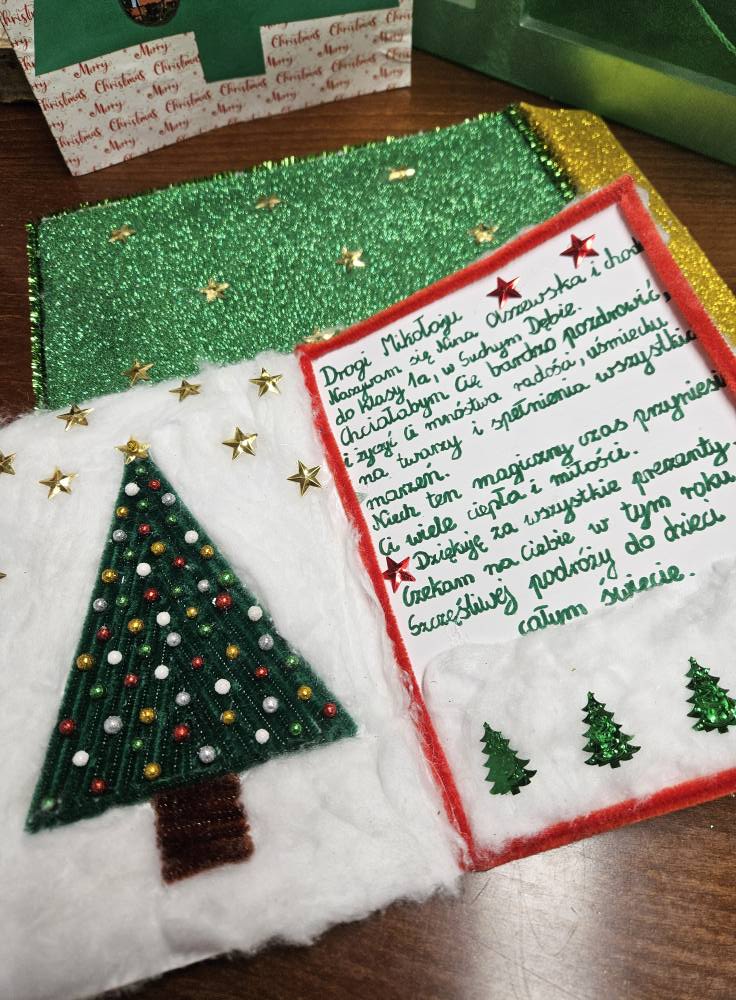 Merry Christmas Merry Christmas
Merry Christmas Merry Christmas
Merry Christmas Merry Christmas
Drogi Mikołaju
Nazywam się Nina Olszewska i chod
do klasy 1a, w Suchym Dębie.
Chciałabym Cię bardzo pozdrowić,
i życzyć Ci mnóstwa radości, uśmiechu
na twarzy i spełnienia wszystkich
marzeń.
Niech ten magiczny czas przyniesi
Ci wiele ciepła i miłości.
Dziękuję za wszystkie prezenty.
Czekam na Ciebie w tym roku
Szczęśliwej podróży do dzieci
całym świecie.